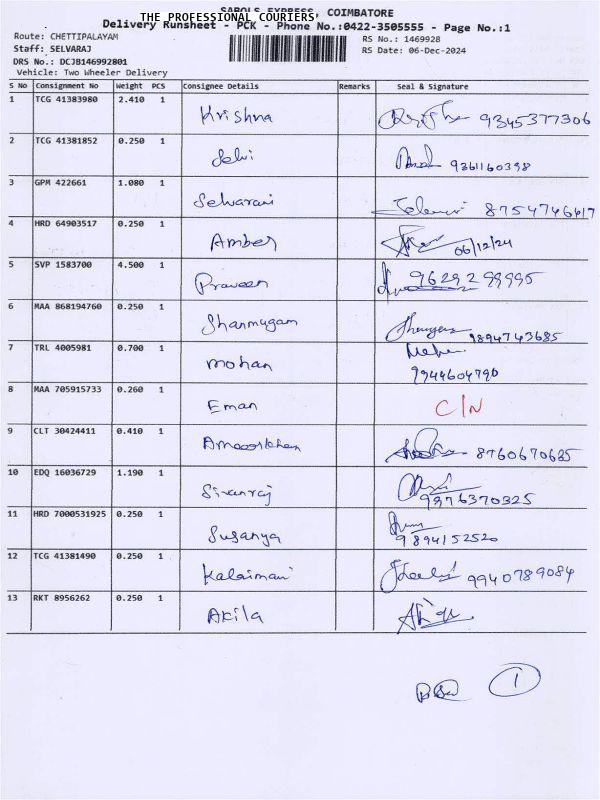 SABOLS EXPRESS, COIMBATORE
THE PROFESSIONAL COURIERS
Delivery Runsheet - PCK - Phone No.:0422-3505555 - Page No.:1
Route: CHETTIPALAYAM
RS No.: 1469928
Staff: SELVARAJ
RS Date: 06-Dec-2024
DRS No.: DCJB146992801
Vehicle: Two Wheeler Delivery
S No Consignment No Weight PCS Consignee Details Remarks Seal & Signature
1 TCG 41383980 2.410 1 Krishna 9345377306
2 TCG 41381852 0.250 1 Selvi 9361160398
3 GPM 422661 1.080 1 Selvarani 8754746417
4 HRD 64903517 0.250 1 Amber 06/12/24
5 SVP 1583700 4.500 1 Praveen 9629299995
6 MAA 868194760 0.250 1 Shanmugam 9894743685
7 TRL 4005981 0.700 1 mohan 9944604790
8 MAA 705915733 0.260 1 Eman C/N
9 CLT 30424411 0.410 1 8760670635
10 EDQ 16036729 1.190 1 Sivanraj 9976370325
11 HRD 7000531925 0.250 1 Susanya 9894152520
12 TCG 41381490 0.250 1 Kalaimani 9940789084
13 RKT 8956262 0.250 1 Akila
1